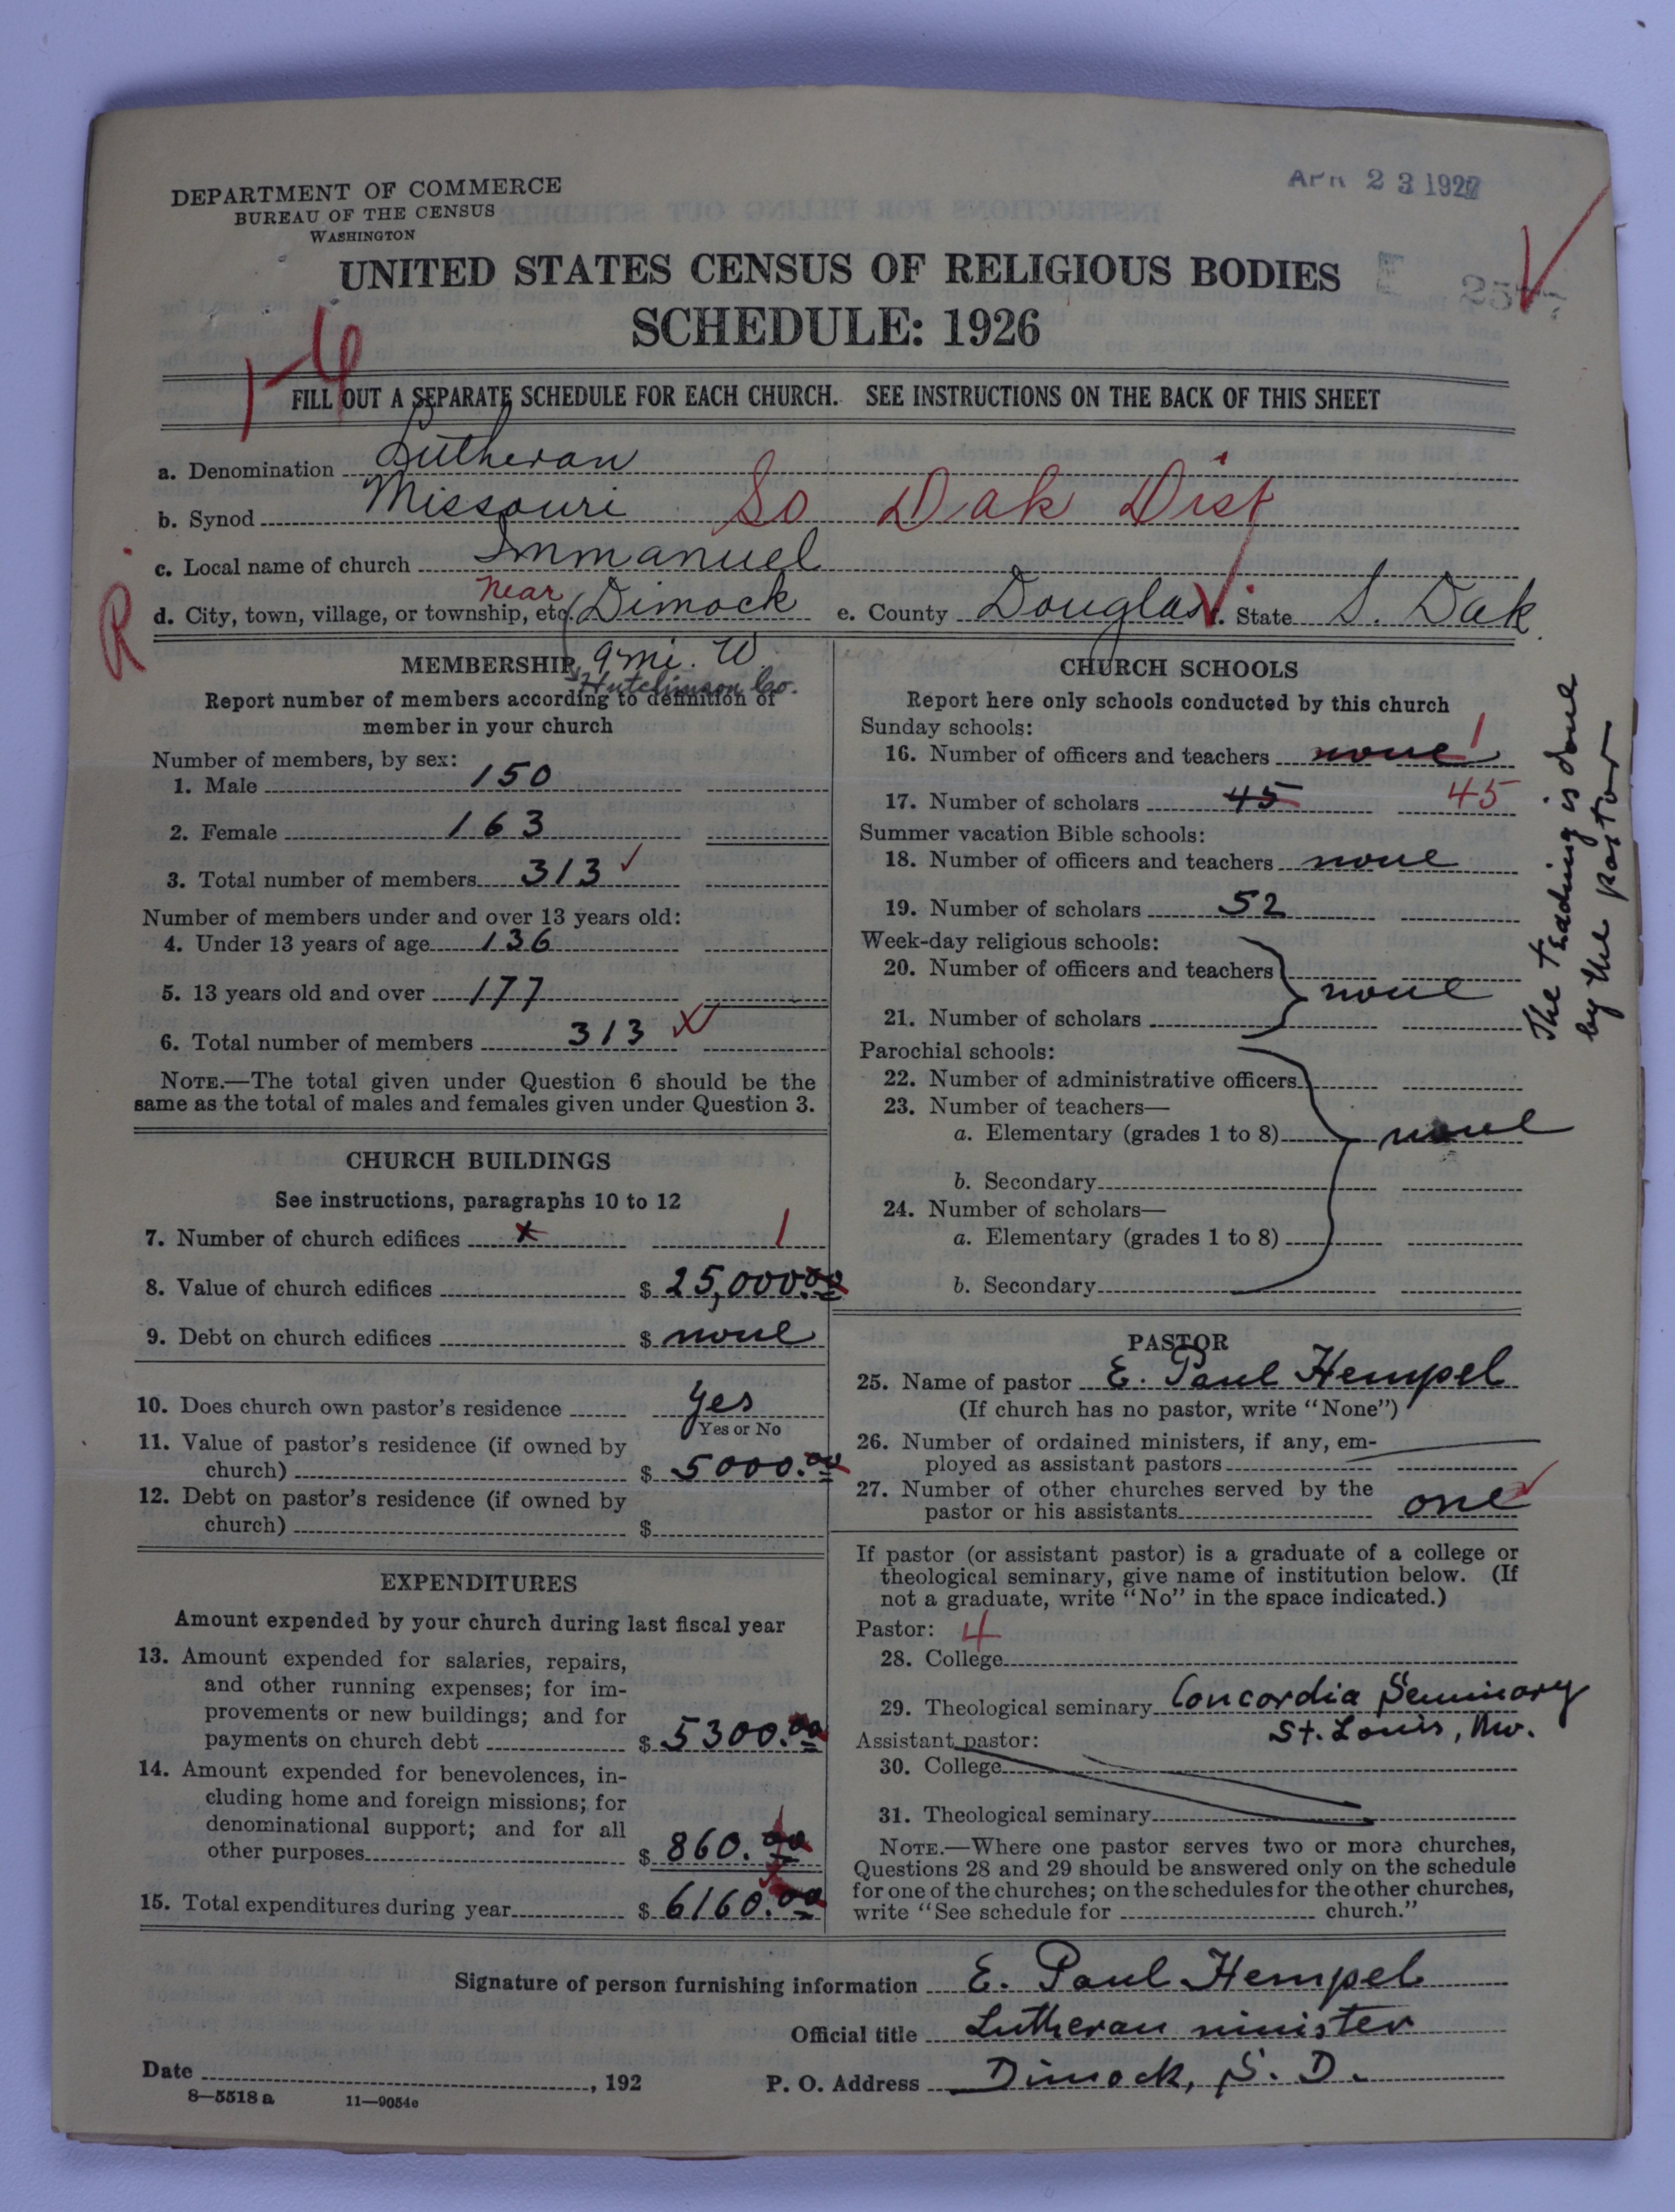 DEPARTMENT OF COMMERCE
BUREAU OF THE CENSUS
WASHINGTON
APR 23 1927
UNITED STATES CENSUS OF RELIGIOUS BODIES
SCHEDULE: 1926
1-4
FILL OUT A SEPARATE SCHEDULE FOR EACH CHURCH. SEE INSTRUCTIONS ON THE BACK OF THIS SHEET
a. Denomination Lutheran
b. Synod Missouri So Dak Dist
c. Local name of church Immanuel
R
d. City, town, village, or township, etc. Near Dimock e. County Douglas f. State S. Dak.
MEMBERSHIP 9 mi. W
Hutchinson Co.
Report number of members according to definition of
member in your church
Number of members, by sex:
1. Male 150
2. Female 163
3. Total number of members 313
Number of members under and over 13 years old:
4. Under 13 years of age 136
5. 13 years old and over 177
6. Total number of members 313
NOTE.—The total given under Question 6 should be the
same as the total of males and females given under Question 3.
CHURCH BUILDINGS
See instructions, paragraphs 10 to 12
7. Number of church edifices x 1
8. Value of church edifices $ 25,000.00
9. Debt on church edifices $ none
10. Does church own pastor's residence Yes
Yes or No
11. Value of pastor's residence (if owned by
church) $ 5000.00
12. Debt on pastor's residence (if owned by
church) $
EXPENDITURES
Amount expended by your church during last fiscal year
13. Amount expended for salaries, repairs,
and other running expenses; for im-
provements or new buildings; and for
payments on church debt $ 5300.00
14. Amount expended for benevolences, in-
cluding home and foreign missions; for
denominational support; and for all
other purposes $ 860.00
15. Total expenditures during year $ 6160.00
CHURCH SCHOOLS
Report here only schools conducted by this church
Sunday schools:
16. Number of officers and teachers none 1
17. Number of scholars 45 45
Summer vacation Bible schools:
18. Number of officers and teachers none
19. Number of scholars 52
Week-day religious schools:
20. Number of officers and teachers
none
21. Number of scholars
Parochial schools:
22. Number of administrative officers
23. Number of teachers—
a. Elementary (grades 1 to 8) none
b. Secondary
24. Number of scholars—
a. Elementary (grades 1 to 8)
b. Secondary
The teaching is done
by the pastor
PASTOR
25. Name of pastor E. Paul Hempel
(If church has no pastor, write "None")
26. Number of ordained ministers, if any, em-
ployed as assistant pastors
27. Number of other churches served by the
pastor or his assistants one
If pastor (or assistant pastor) is a graduate of a college or
theological seminary, give name of institution below. (If
not a graduate, write "No" in the space indicated.)
Pastor: 4
28. College
29. Theological seminary Concordia Seminary
St. Louis, Mo.
Assistant pastor:
30. College
31. Theological seminary
NOTE.—Where one pastor serves two or more churches,
Questions 28 and 29 should be answered only on the schedule
for one of the churches; on the schedules for the other churches,
write "See schedule for church."
Signature of person furnishing information E. Paul Hempel
Official title Lutheran minister
Date , 192
P. O. Address Dimock, S. D.
8—5518 a 11—9054c